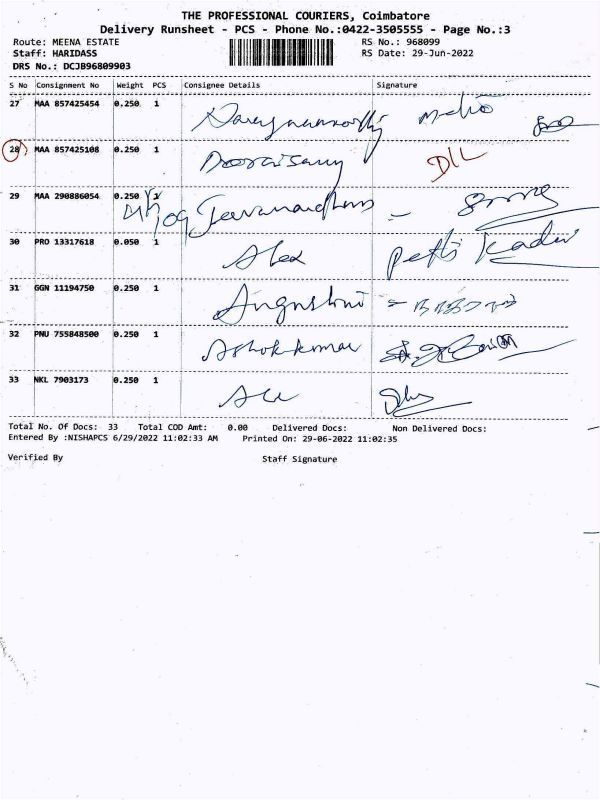 THE PROFESSIONAL COURIERS, Coimbatore
Delivery Runsheet - PCS - Phone No.:0422-3505555 - Page No.:3
Route: MEENA ESTATE RS No.: 968099
Staff: HARIDASS RS Date: 29-Jun-2022
DRS No.: DCJB96809903
S No Consignment No Weight PCS Consignee Details Signature
27 MAA 857425454 0.250 1
28 MAA 857425108 0.250 1 Doraisamy DLL
29 MAA 290886054 0.250 1
30 PRO 13317618 0.050 1 Alex
31 GGN 11194750 0.250 1
32 PNU 755848500 0.250 1 Ashokkumar
33 NKL 7903173 0.250 1
Total No. Of Docs: 33 Total COD Amt: 0.00 Delivered Docs: Non Delivered Docs:
Entered By :NISHAPCS 6/29/2022 11:02:33 AM Printed On: 29-06-2022 11:02:35
Verified By Staff Signature